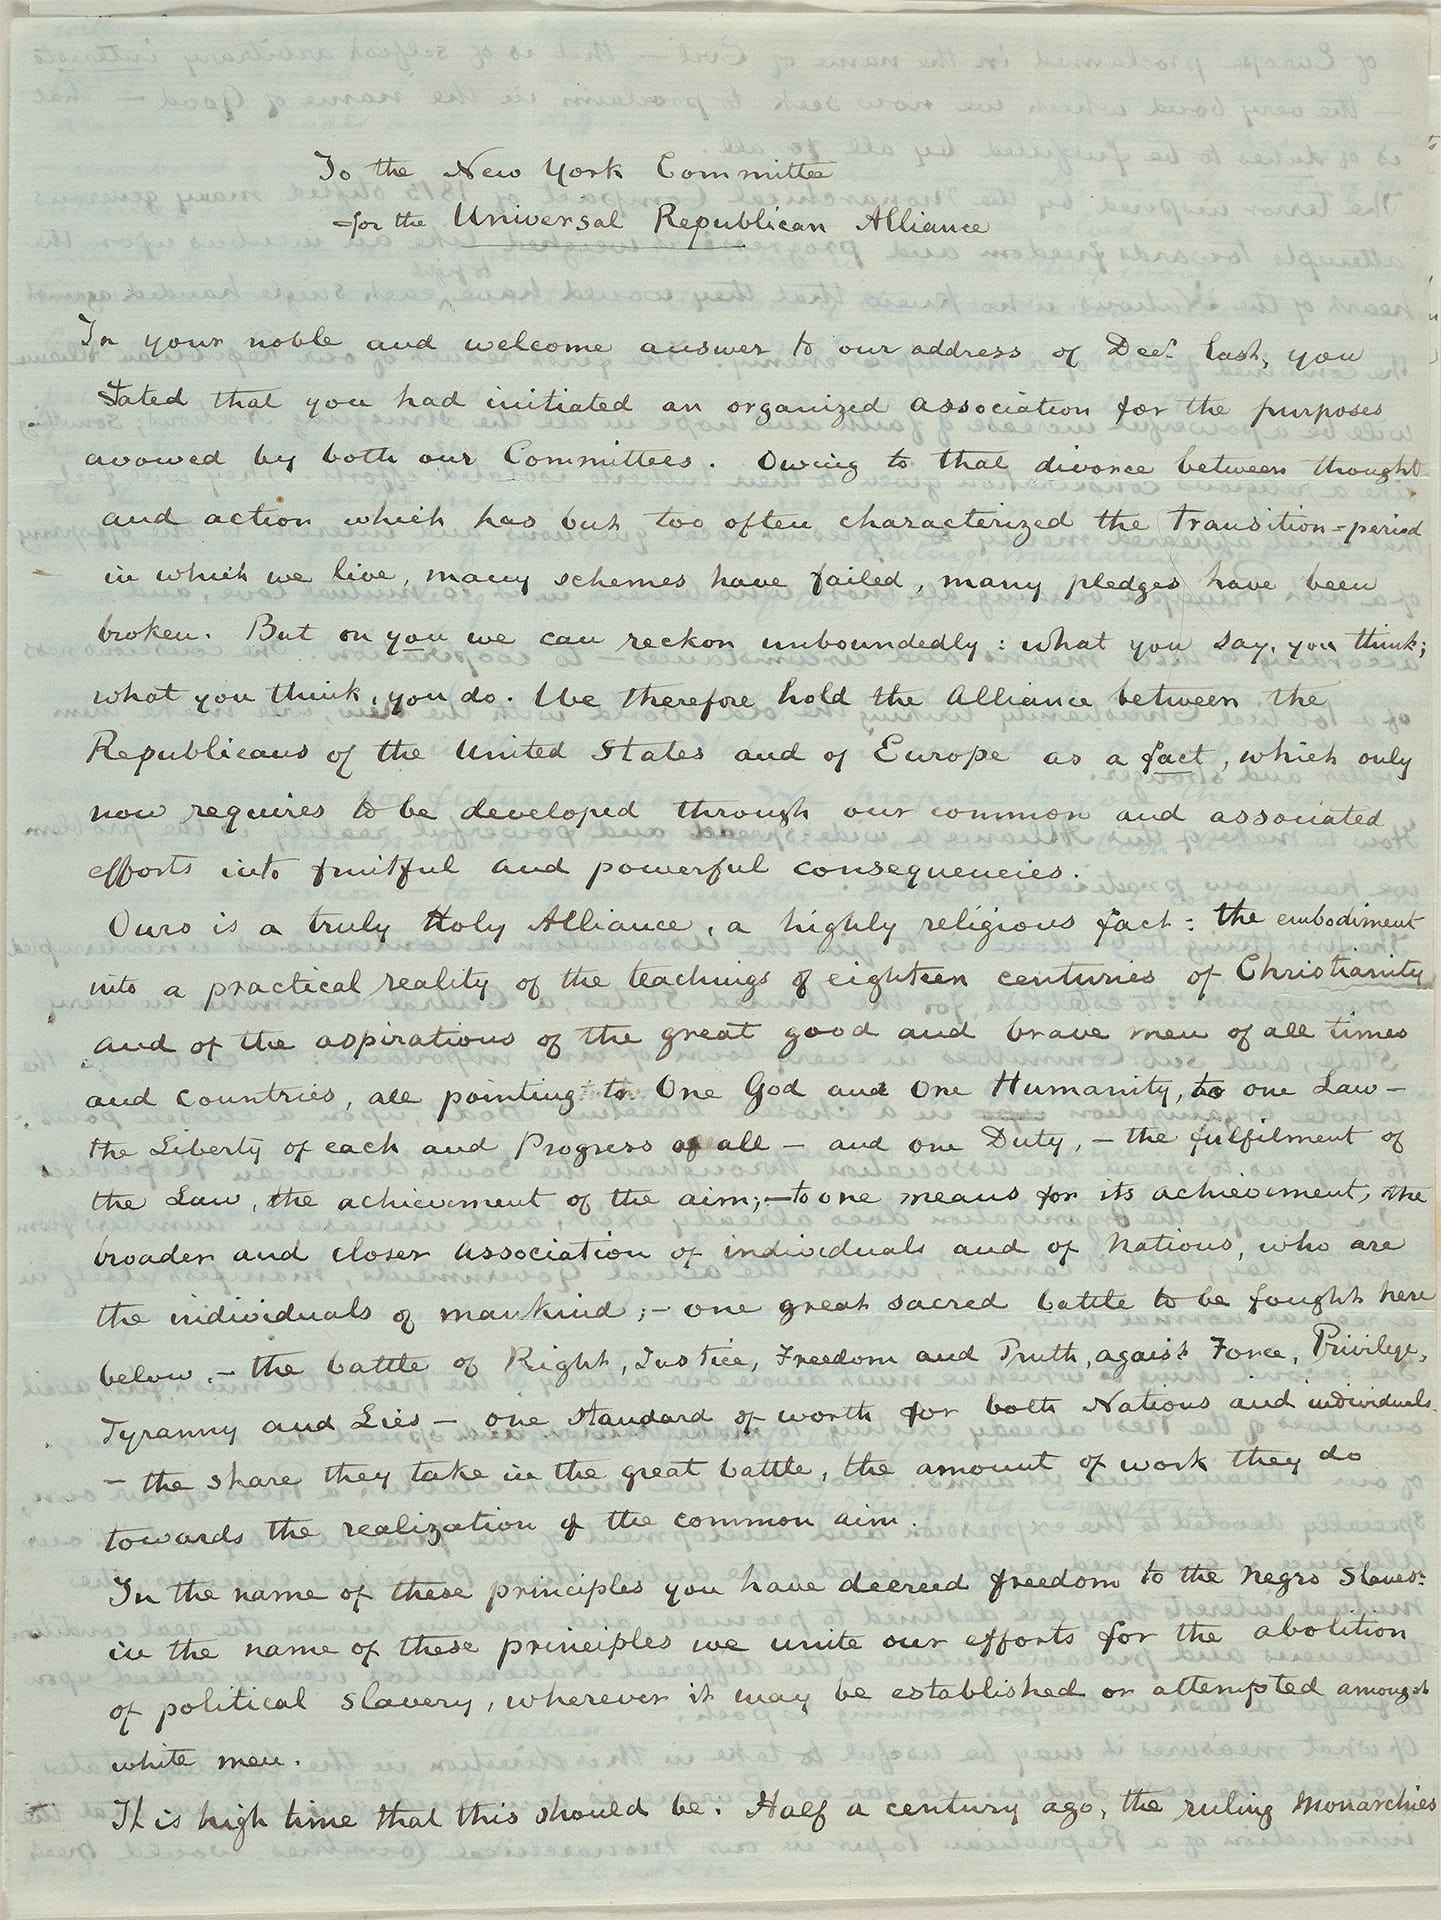 To the New York Committee
for the Universal Republican Alliance
In your noble and welcome answer to our address of Decr. last, you
stated that you had initiated an organized association for the purposes
avowed by both our Committees. Owing to that divorce between thought
and action which has but too often characterized the transition-period
in which we live, many schemes have failed, many pledges have been
broken. But on you we can reckon unboundedly: what you say, you think;
what you think, you do. We therefore hold the Alliance between the
Republicans of the United States and of Europe as a fact, which only
now requires to be developed through our common and associated
efforts into fruitful and powerful consequencies.
Ours is a truly Holy Alliance, a highly religious fact: the embodiment
into a practical reality of the teachings of eighteen centuries of Christianity
and of the aspirations of the great good and brave men of all times
and countries, all pointing to One God and One Humanity, to one Law –
the Liberty of each and Progress of all – and one Duty, – the fulfilment of
the Law, the achievement of the aim; – to one means for its achievement, the
broader and closer association of individuals and of Nations, who are
the individuals of mankind; – one great sacred battle to be fought here
below, – the battle of Right, Justice, Freedom and Truth, against Force, Privilege,
Tyranny and Lies – one standard of worth for both Nations and individuals
– the share they take in the great battle, the amount of work they do
towards the realization of the common aim.
In the name of these principles you have decreed freedom to the Negro Slaves:
in the name of these principles we unite our efforts for the abolition
of political slavery, wherever it may be established or attempted amongst
white men.
It is high time that this should be. Half a century ago, the ruling Monarchies